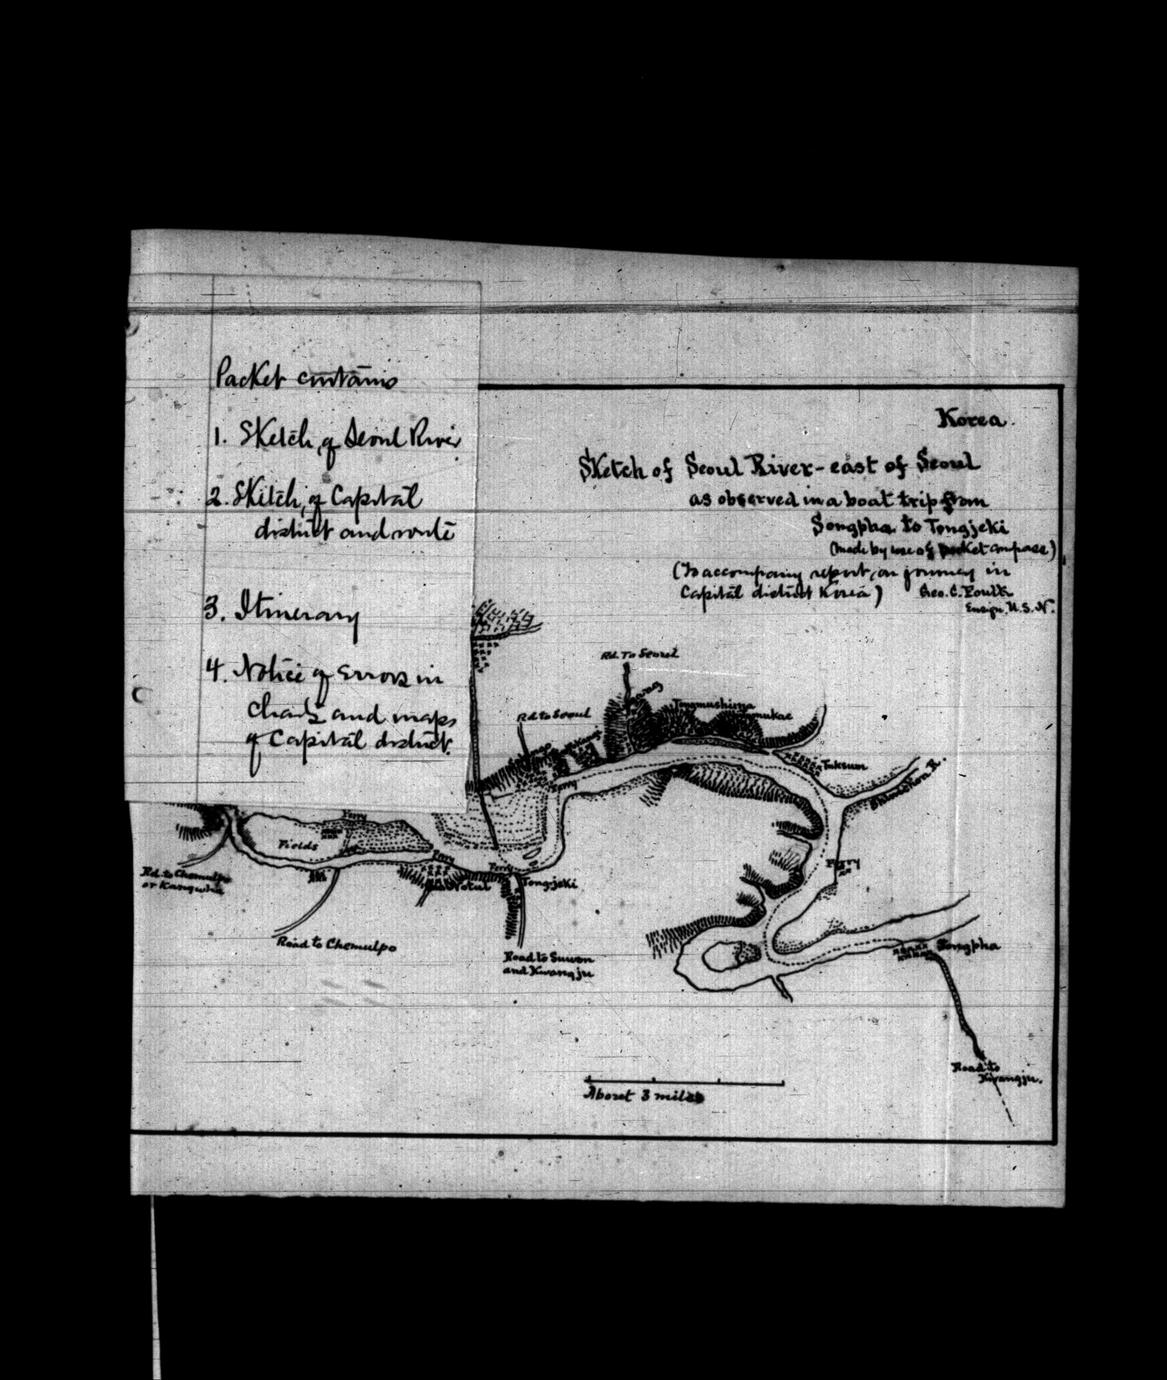 Packet contains
1. Sketch of Seoul River
2. Sketch of Capital
district and route
3. Itinerary
4. Notice of Errors in
charts and maps
of Capital district.
Korea.
Sketch of Seoul River - east of Seoul
as observed in a boat trip from
Songpha to Tongjeki
(made by use of pocket compass)
(To accompany report, on journey in
Capital district Korea)
Geo. C. Foulk
Ensign, U.S.N.
Rd. To Seoul
Rd to Seoul
Tongmushinga
Tuksum
Ferry
Fields
Ferry
Ferry
Ferry
Tongjeki
Rd. to Chemulpo
or Kangwha
Road to Chemulpo
Road to Suwon
and Kwangju
Songpha
Road to
Kwangju.
About 3 miles